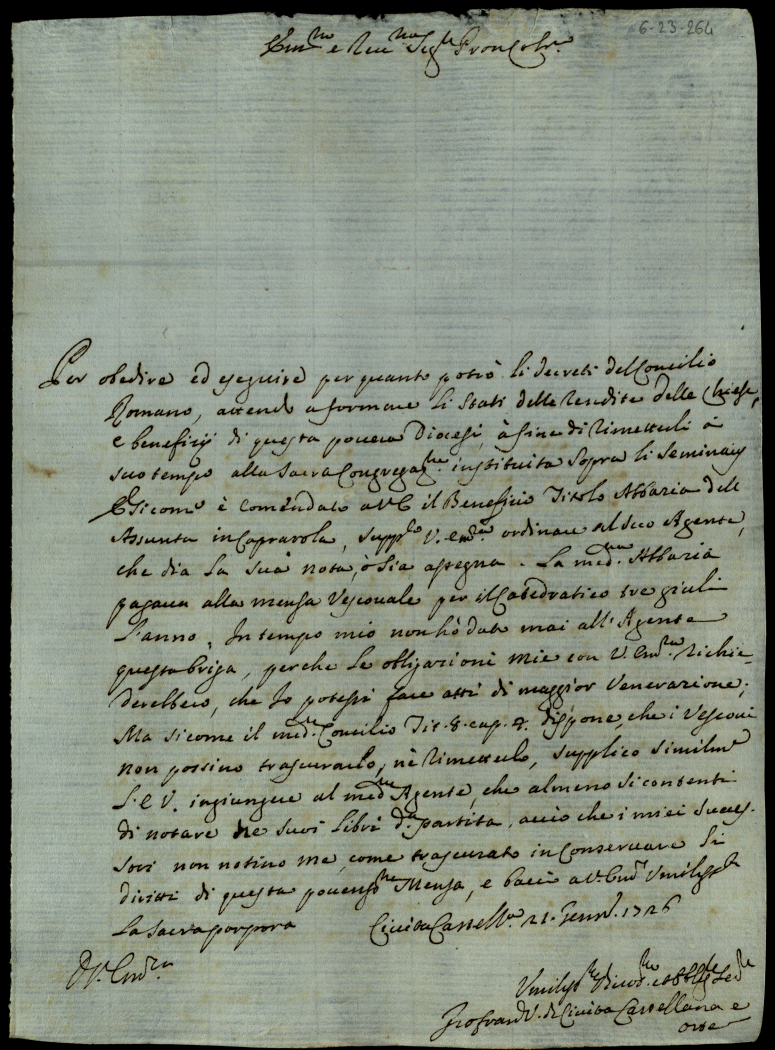 6-23-264
Em.mo e Rev.mo Sig.re Pron Col.mo
Per obedire ed eseguire per quanto potrò li decreti del Concilio
Romano, attendo a formare li Stati delle rendite delle Chiese,
e beneficij di questa povera Diocesi, à fine di rimetterli à
suo tempo alla Sacra Congregaz.ne instituita sopra li Seminarij
E sicome è comendato a V.E. il Beneficio Titolo Abbazia dell
Assunta in Capravola, suppl.co V. Em.za ordinare al suo Agente,
che dia la sua nota, ò sia assegna. La med.ma Abbazia
pagava alla mensa Vescovale per il Catedratico tre giulii
l'anno. In tempo mio non hò dato mai all'Agente
questa briga, perche le obligazioni mie con V. Em.za richie-
derebbero, che Io potessi fare atti di maggior venerazione;
Ma sicome il med.mo Concilio Tit. 8. cap. 7. dispone, che i Vescovi
non possino trascurarlo, nè rimetterlo, supplico similm.te
l'E V. ingiungere al med.mo Agente, che almeno si contenti
di notare ne suoi libri d.a partita, acciò che i miei succes-
sori non notino me, come trascurato in conservare li
diritti di questa poveriss.ma Mensa, e bacio a V. Em.za umiliss.te
la sacra porpora Civita Castell.a 21. Genn.o 1726
D V. Em.za
Umiliss.mo Divot.mo et Obblig.mo Ser.re
V. di Civita Castellana e
Orte